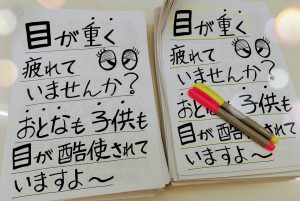 目が重く
疲れて
いませんか?
おとなも子供も
目が酷使されて
いますよ〜
目が重く
疲れて
いませんか?
おとなも子供も
目が酷使されて
いますよ〜